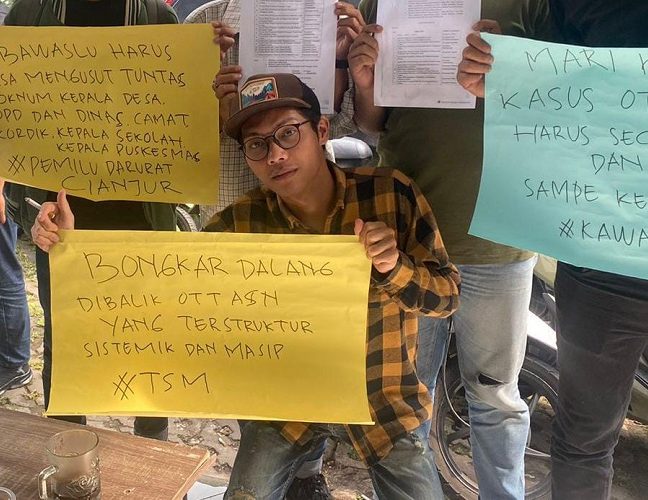 BAWASLU HARUS
SA MENGUSUT TUNTAS
OKNUM KEPALA DESA,
OPD DAN DINAS, CAMAT
KORDIK, KEPALA SEKOLAH
KEPALA PUSKESMAS
#PEMILU DARURAT
CIANJUR
BONGKAR DALANG
DIBALIK OTT ASN
YANG TERSTRUKTUR
SISTEMIK DAN MASIP
#TSM
MARI K
KASUS OT
HARUS SEC
DAN
SAMPE KE
#KAWA